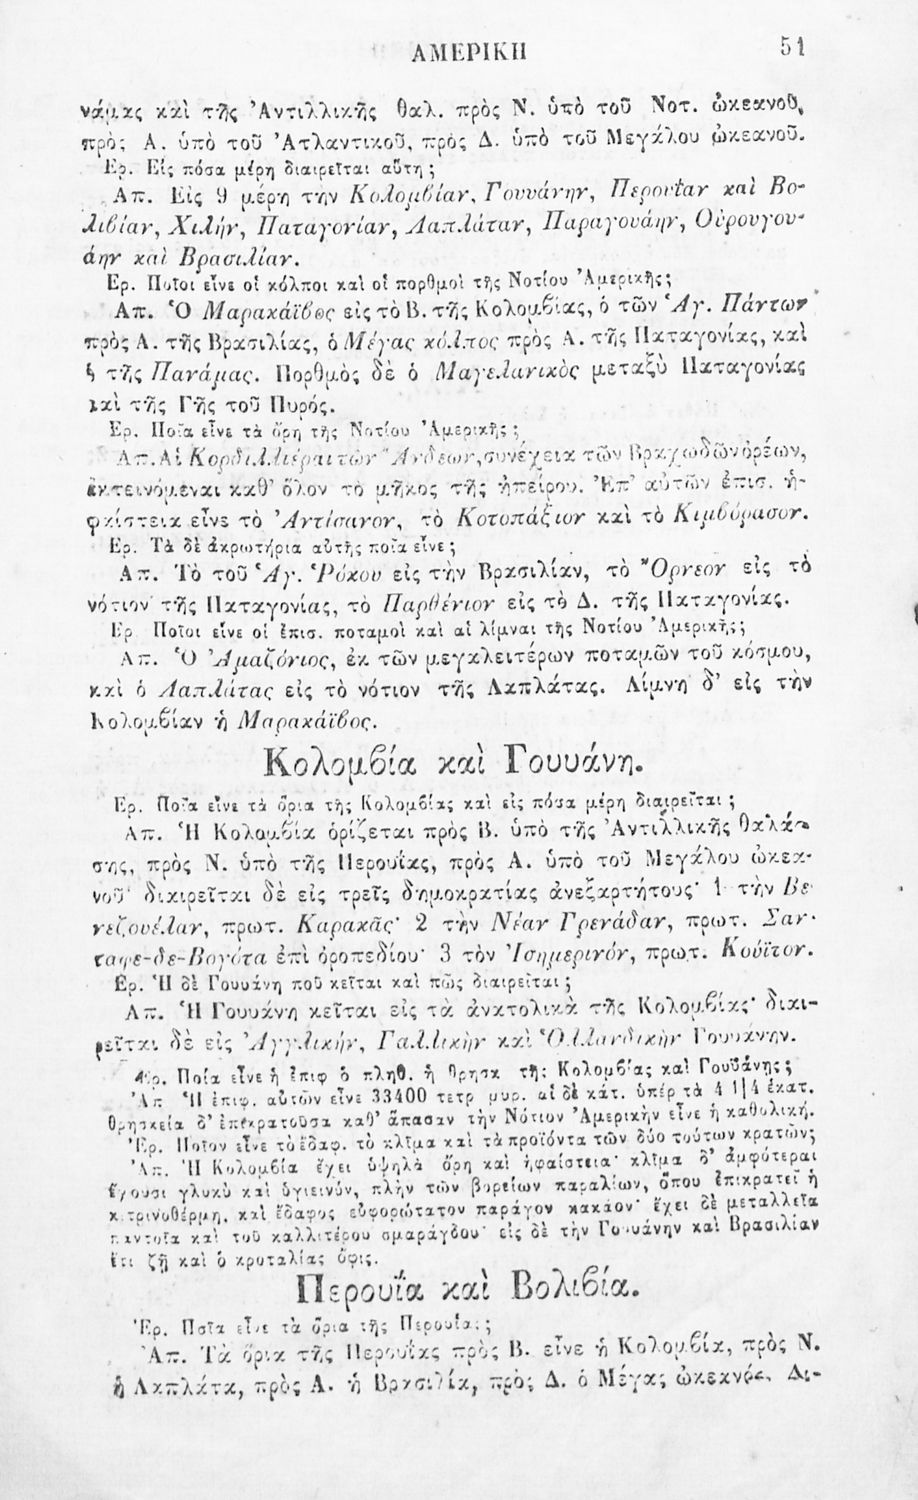 ΑΜΕΡΙΚΗ 51
νάμας καὶ τῆς Ἀντιλλικῆς θαλ. πρὸς Ν. ὑπὸ τοῦ Νοτ. ὠκεανοῦ,
πρὸς Α. ὑπὸ τοῦ Ἀτλαντικοῦ, πρὸς Δ. ὑπὸ τοῦ Μεγάλου ὠκεανοῦ.
Ἐρ. Εἰς πόσα μέρη διαιρεῖται αὕτη;
Απ. Εἰς 9 μέρη τὴν Κολομβίαν, Γουυάνην, Περουΐαν καὶ Βο-
λιβίαν, Χιλήν, Παταγονίαν, Λαπλάταν, Παραγουάην, Οὐρουγου-
άην καὶ Βρασιλίαν.
Ερ. Ποῖοι εἶνε οἱ κόλποι καὶ οἱ πορθμοὶ τῆς Νοτίου Ἀμερικῆς;
Απ. Ὁ Μαρακάϊβος εἰς τὸ Β. τῆς Κολομβίας, ὁ τῶν Ἁγ. Πάντων
πρὸς Α. τῆς Βρασιλίας, ὁ Μέγας κόλπος πρὸς Α. τῆς Παταγονίας, καὶ
ὁ τῆς Πανάμας. Πορθμὸς δὲ ὁ Μαγελανικὸς μεταξὺ Παταγονίας
καὶ τῆς Γῆς τοῦ Πυρός.
Ερ. Ποῖα εἶνε τὰ ὄρη τῆς Νοτίου Ἀμερικῆς;
Απ. Αἱ Κορδιλλιέραι τῶν Ἄνδεων, συνέχεια τῶν Βραχωδῶν ὀρέων,
ἐκτεινόμεναι καθ' ὅλον τὸ μῆκος τῆς ἠπείρου. Ἐπ' αὐτῶν ἐπισ. ἡ-
φαίστεια εἶνε τὸ Ἀντίσανον, τὸ Κοτοπάξιον καὶ τὸ Κιμβόρασον.
Ερ. Τὰ δὲ ἀκρωτήρια αὐτῆς ποῖα εἶνε;
Απ. Τὸ τοῦ Ἁγ. Ῥόκου εἰς τὴν Βρασιλίαν, τὸ Ὄρνεον εἰς τὸ
νότιον τῆς Παταγονίας, τὸ Παρθένιον εἰς τὸ Δ. τῆς Παταγονίας.
Ερ. Ποῖοι εἶνε οἱ ἐπισ. ποταμοὶ καὶ αἱ λίμναι τῆς Νοτίου Ἀμερικῆς;
Απ. Ὁ Ἀμαζόνιος, ἐκ τῶν μεγαλειτέρων ποταμῶν τοῦ κόσμου,
καὶ ὁ Λαπλάτας εἰς τὸ νότιον τῆς Λαπλάτας. Λίμνη δ' εἰς τὴν
Κολομβίαν ἡ Μαρακάϊβος.
Κολομβία καὶ Γουυάνη.
Ερ. Ποῖα εἶνε τὰ ὅρια τῆς Κολομβίας καὶ εἰς πόσα μέρη διαιρεῖται;
Απ. Ἡ Κολομβία ὁρίζεται πρὸς Β. ὑπὸ τῆς Ἀντιλλικῆς θαλάσ-
σης, πρὸς Ν. ὑπὸ τῆς Περουΐας, πρὸς Α. ὑπὸ τοῦ Μεγάλου ὠκεα-
νοῦ· διαιρεῖται δὲ εἰς τρεῖς δημοκρατίας ἀνεξαρτήτους· 1 τὴν Βε-
νεζουέλαν, πρωτ. Καρακᾶς· 2 τὴν Νέαν Γρενάδαν, πρωτ. Σαν-
ταφε-δε-Βογότα ἐπὶ ὀροπεδίου· 3 τὸν Ἰσημερινόν, πρωτ. Κούϊτον.
Ερ. Ἡ δὲ Γουυάνη ποῦ κεῖται καὶ πῶς διαιρεῖται;
Απ. Ἡ Γουυάνη κεῖται εἰς τὰ ἀνατολικὰ τῆς Κολομβίας· διαι-
ρεῖται δὲ εἰς Ἀγγλικήν, Γαλλικὴν καὶ Ὁλλανδικὴν Γουυάνην.
Ερ. Ποία εἶνε ἡ ἐπιφ ὁ πληθ. ἡ θρησκ τῆς Κολομβίας καὶ Γουϋάνης;
Ἀπ Ἡ ἐπιφ. αὐτῶν εἶνε 33400 τετρ μυρ. αἱ δὲ κάτ. ὑπέρ τὰ 4 1|4 ἑκατ.
θρησκεία δ' ἐπικρατοῦσα καθ' ἅπασαν τὴν Νότιον Ἀμερικὴν εἶνε ἡ καθολική.
Ἐρ. Ποῖον εἶνε τὸ ἔδαφ. τὸ κλῖμα καὶ τὰ προϊόντα τῶν δύο τούτων κρατῶν;
Ἀπ. Ἡ Κολομβία ἔχει ὑψηλὰ ὄρη καὶ ἡφαίστεια· κλῖμα δ' ἀμφότεραι
ἔχουσι γλυκὺ καὶ ὑγιεινόν, πλὴν τῶν βορείων παραλίων, ὅπου ἐπικρατεῖ ἡ
κιτρινοθέρμη, καὶ ἔδαφος εὐφορώτατον παράγον κακάον· ἔχει δὲ μεταλλεῖα
παντοῖα καὶ τοῦ καλλιτέρου σμαράγδου· εἰς δὲ τὴν Γουυάνην καὶ Βρασιλίαν
ἔτι ζῇ καὶ ὁ κροταλίας ὄφις.
Περουΐα καὶ Βολιβία.
Ἐρ. Ποῖα εἶνε τὰ ὅρια τῆς Περουΐας;
Ἀπ. Τὰ ὅρια τῆς Περουΐας πρὸς Β. εἶνε ἡ Κολομβία, πρὸς Ν.
ἡ Λαπλάτα, πρὸς Α. ἡ Βρασιλία, πρὸς Δ. ὁ Μέγας ὠκεανός. Δι-